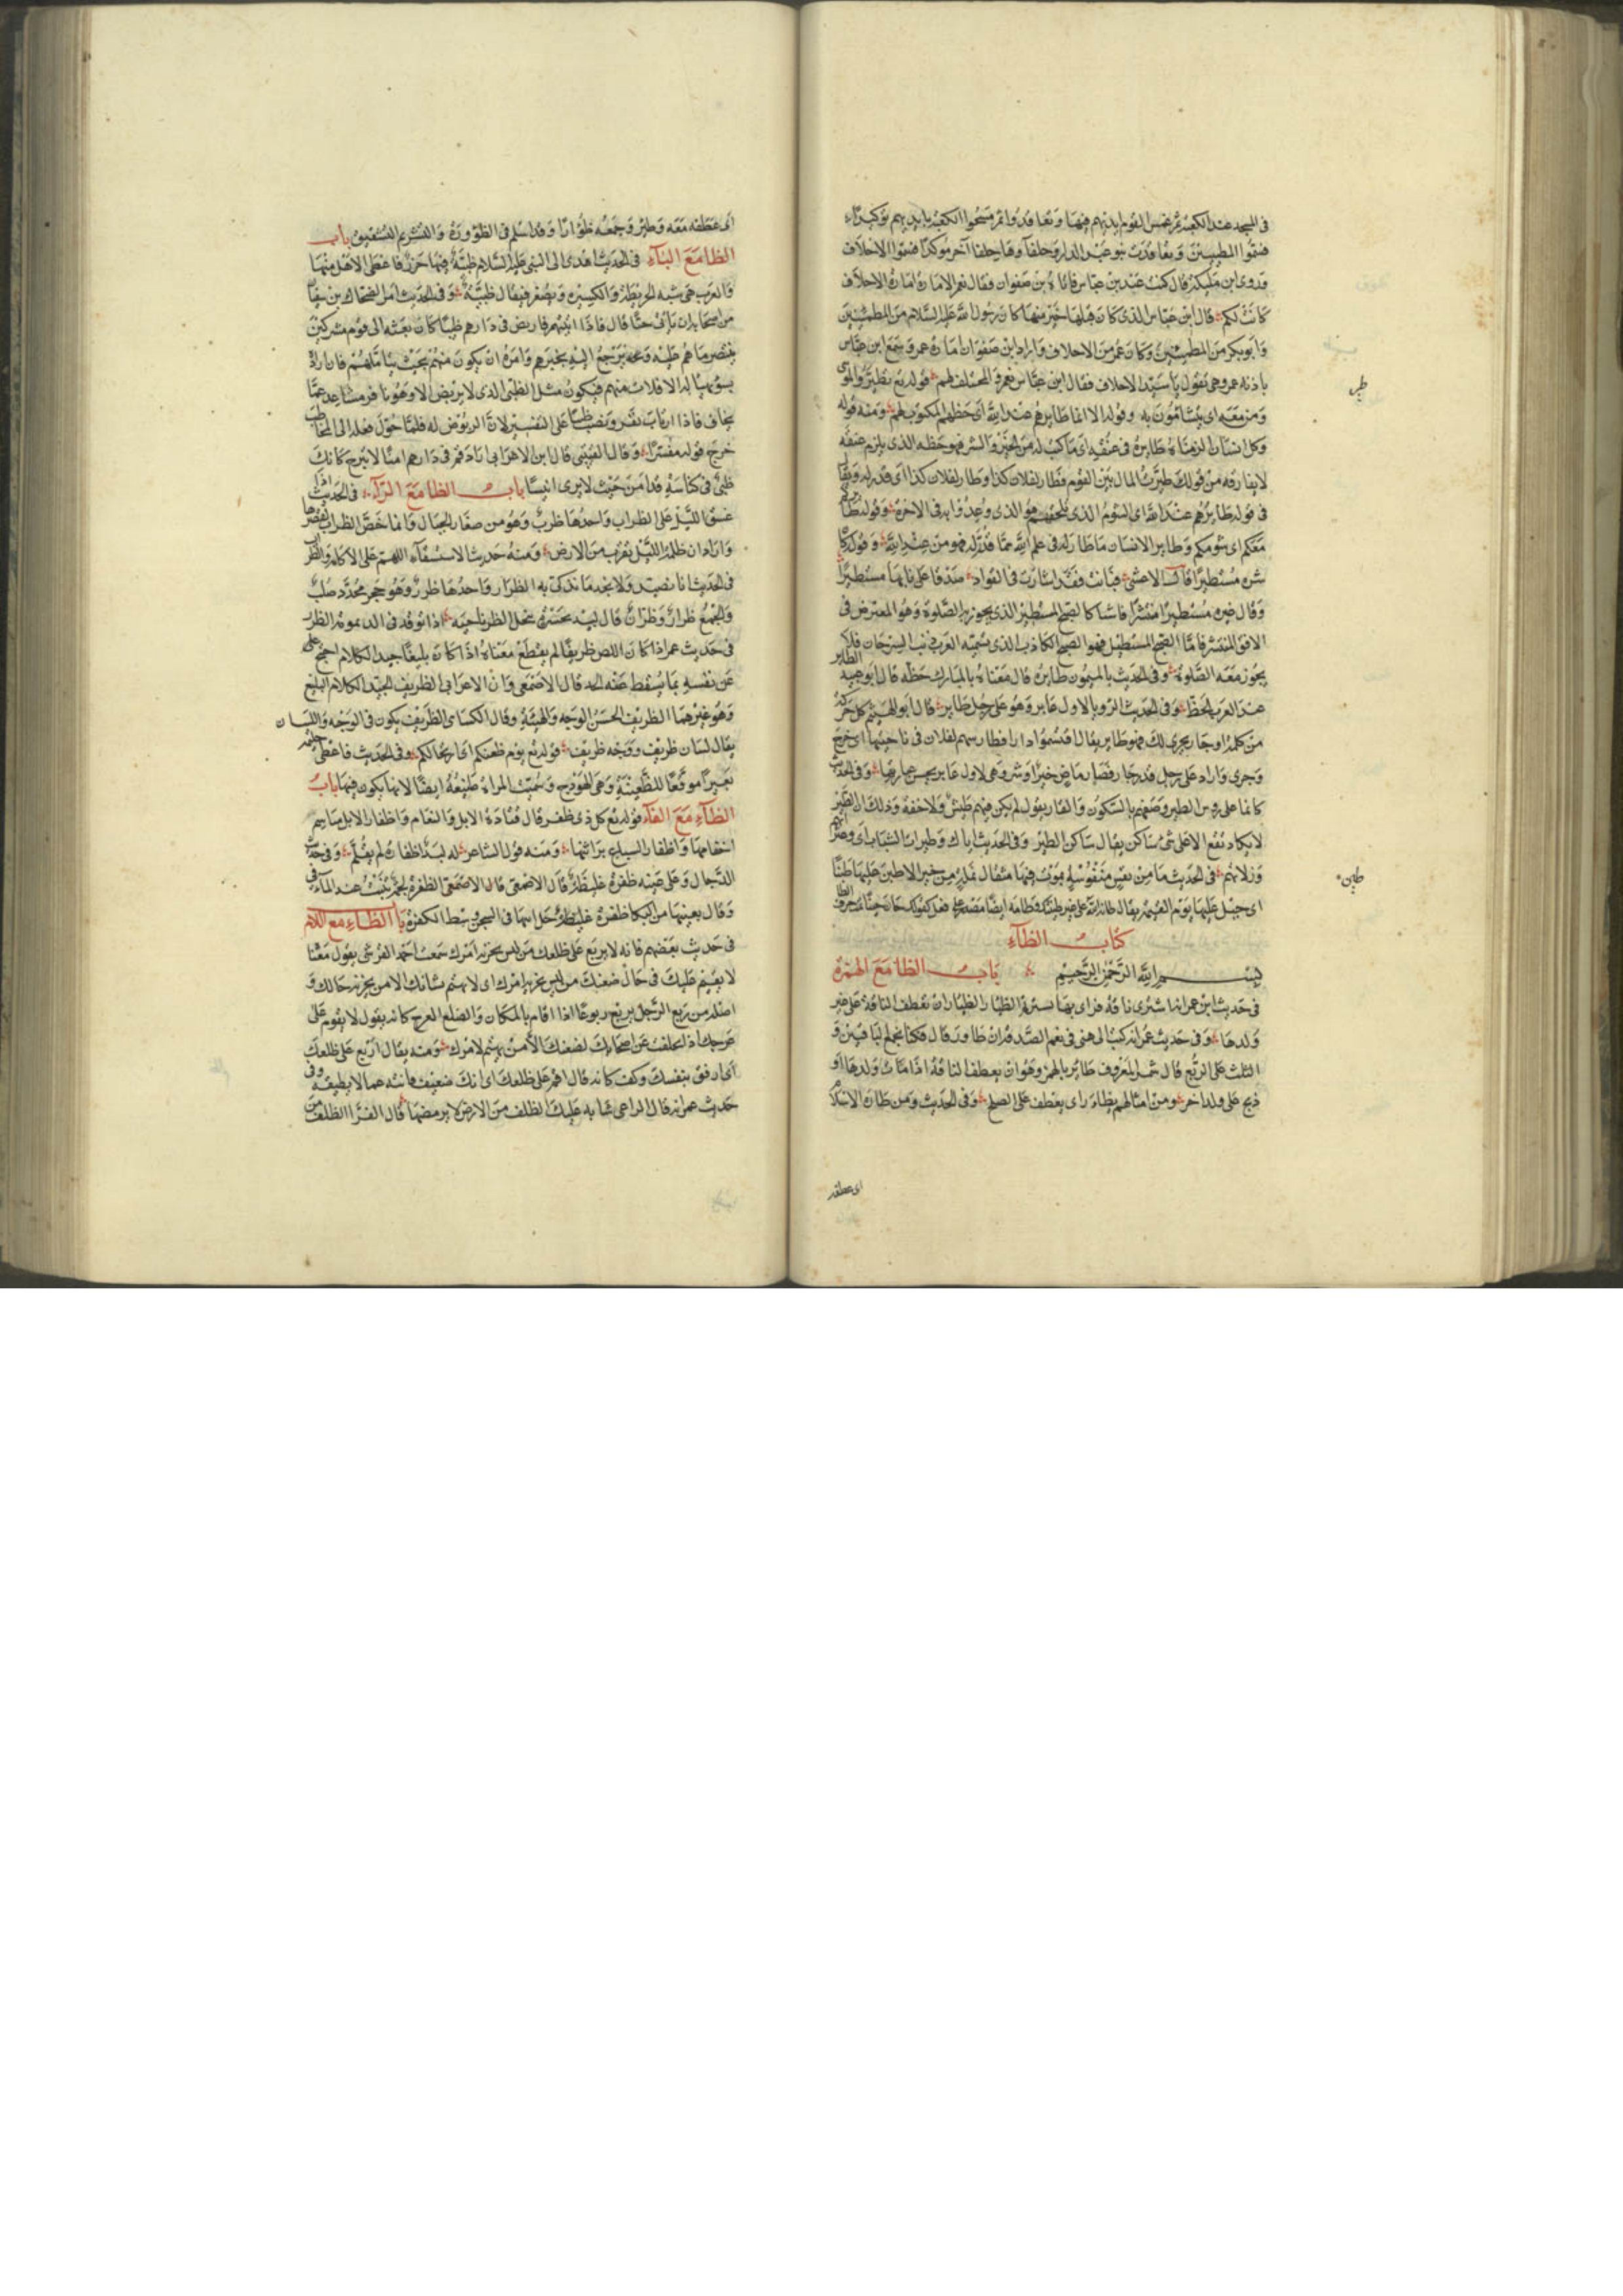 في المسجد عند الكعبة ثم غمس القوم ايديهم فيها وتعاقدوا ثم مسحوا الكعبة بايديهم توكيدا
فسموا المطيبين وتعاقدت بنو عبد الدار وحلفاوها حلفا آخر موكدا فسموا الاحلاف
وروى ابن مليكة قال كنت عند ابن عباس فاتاه ابن صفوان فقال نعم الامارة امارة الاحلاف
كانت لكم قال ابن عباس الذي كان قبلها خير منها كان رسول الله عليه السلام من المطيبين
وابو بكر من المطيبين وكان عمر من الاحلاف واراد ابن صفوان امارة عمر وسمع ابن عباس
نادبة عمر وهي تقول يا سيد الاحلاف فقال ابن عباس نعم والمحتلف عليهم قوله تع يطيروا بموسى
طير
ومن معه اي يتشامون به وقوله الا انما طايرهم عند الله اي حظهم المكتوب لهم ومنه قوله
وكل انسان الزمناه طايره في عنقه اي ما كتب له من الخير والشر فهو حظه الذي يلزم عنقه
لا يفارقه من قولك طيرت المال بين القوم فطار لفلان كذا وطار لفلان كذا اي قدر له ويقال
في قوله طايرهم عند الله اي الشوم الذي يلحقهم هو الذي وعدوا به في الاخرة وقوله طايركم
معكم اي شومكم وطاير الانسان ما طار له في علم الله مما قدر له فهو من عند الله وقوله كان
شره مستطيرا قال الاعشى فبانت وقد اسارت في الفواد صدعا على نايها مستطيرا
وقال غيره مستطيرا منتشرا فاشيا كالصبح المستطير الذي يجوز به الصلوة وهو المعترض في
الافق المنتشر فاما الصبح المستطيل فهو الصبح الكاذب الذي تسميه العرب ذنب السرحان فلا
يجوز معه الصلوة وفي الحديث بالميمون طايره قال معناه بالمبارك حظه قال ابو عبيد الطاير
عند العرب الحظ وفي الحديث الرويا لاول عابر وهو على رجل طاير قال ابو الهيثم كل حركة
من كلمة او جار يجري لك فهو طاير يقال اقتسموا دارا فطار سهم لفلان في ناحيتها اي خرج
وجرى واراد على رجل قدر جار وقضاء ماض خير او شر وهي لاول عابر يحسن عبارتها وفي الحديث
كانما على روسهم الطير وصفهم بالسكون والوقار يقول لم يكن فيهم طيش ولا خفة وذلك ان الطير
لا يكاد تقع الا على شي ساكن يقال ساكن الطير وفي الحديث اياك وطيرات الشباب اي
وزلاتهم في الحديث ما من نفس منفوسة يموت فيها مثقال نملة من خير الا طين عليها طينا
طين
اي جبل عليها يوم القيمة يقال طانه الله على غير طينتك وطامه ايضا
كتاب الظاء
بسم الله الرحمن الرحيم باب الظا مع الهمزة
في حديث ابن عمر انه اشترى ناقة فراى بها تشريم الظيار الظيار ان تعطف الناقة على غير
ولدها وفي حديث عمر انه كتب الى هني في نعم الصدقة ان ظاور قال فكنا نجمع الناقتين و
الثلث على الربع قال شمر المعروف ظائر بالهمز وهو ان يعطف الناقة اذا مات ولدها او
ذبح على ولد اخر ومن امثالهم يظار اي يعطف على الصلح وفي الحديث ومن ظاره الاسلام
اي عطفه
اي عطفه معه وظير وجمعه ظؤارا وقد اسلم في الظؤورة والتشريم التشقيق باب
الظا مع الباء في الحديث اهدى الى النبي عليه السلام ظبية فيها خرز فاعطى الاهل منها
والعرب هي شبه الخريطة والكيس ويصغر فيقال ظبية وفي الحديث امر الضحاك بن سفيان
من اصحابه ان ياتي حتا قال فاذا اتيتهم فاربض في دارهم ظبيا كان بعثه الى قوم مشركين
يتبصر ما هم عليه ويرجع اليه بخبرهم وامره ان يكون منهم بحيث يتاملهم فان ارادوه
بسو تهيا له الافلات منهم فيكون مثل الظبي الذي لا يربض الا وهو نافر متباعد عما
يخاف فاذا ارتاب نفر ونصب ظبيا على التفسير لان الربوض له فلما حول فعله الى المخاطب
خرج قوله مفسرا وقال القتيبي قال ابن الاعرابي اراد قم في دارهم امنا لا تبرح كانك
ظبي في كناسه قد امن حيث لا يرى انيسا باب الظا مع الراء في الحديث
غسق الليل على الظراب واحدها ظرب وهو من صغار الجبال وانما خص الظراب لقصرها
واراد ان ظلمة الليل يقرب من الارض ومنه حديث الاستسقاء اللهم على الاكام والظراب
في الحديث انا نصيد ولا نجد ما نذكي به الا الظرار واحدها ظرر وهو حجر محدد صلب
والجمع ظرار وظران قال لبيد بجسرة تنجل الظران ناجية اذا توقد في الديمومة الظرر
في حديث عمر اذا كان اللص ظريفا لم يقطع معناه اذا كان بليغا جيد الكلام احتج على
عن نفسه بما يسقط عنه الحد قال الاصمعي وابن الاعرابي الظريف الجيد الكلام البليغ
وهو غيرهما الظريف الحسن الوجه والهيئة وقال الكساي الظريف يكون في الوجه واللسان
يقال لسان ظريف ووجه ظريف قوله تع يوم ظعنكم اي ارتحالكم وفي الحديث فاعطى حليمة
بعيرا موقعا للظعينة وهي الهودج وسميت المراة ظعينة ايضا لانها يكون فيها باب
الظاء مع الفاء قوله تع كل ذي ظفر قال قتادة الابل والنعام واظفار الابل مناسم
اخفافها واظفار السباع براثنها ومنه قول الشاعر له لبد اظفاره لم يقلم وفي حديث
الدجال وعلى عينه ظفرة غليظة قال الاصمعي قال الاصمعي الظفرة لحمة ينبت عند المآقي
باب الظاء مع اللام
في حديث بعضهم فانه لا يربع على ظلعك من ليس يحزنه امرك سمعت احمد القرشي يقول معنا
لا يقيم عليك في حال ضعفك من ليس يحزنه امرك اي لا يهتم بشانك الا من يحزنه حالك و
اصله من ربع الرجل يربع ربوعا اذا اقام بالمكان والضلع العرج كانه يقول لا يقوم على
عرجك اذ تخلفت عن اصحابك لضعفك الا من يهتم لامرك ومنه يقال اربع على ظلعك
اي ارفق بنفسك وكف كانه قال اقم على ظلعك اي انك ضعيف فانته عما لا يطيقه وفي
حديث عمر انه قال لراعي شايه عليك الظلف من الارض لا يرمضها قال الفرا الظلف من